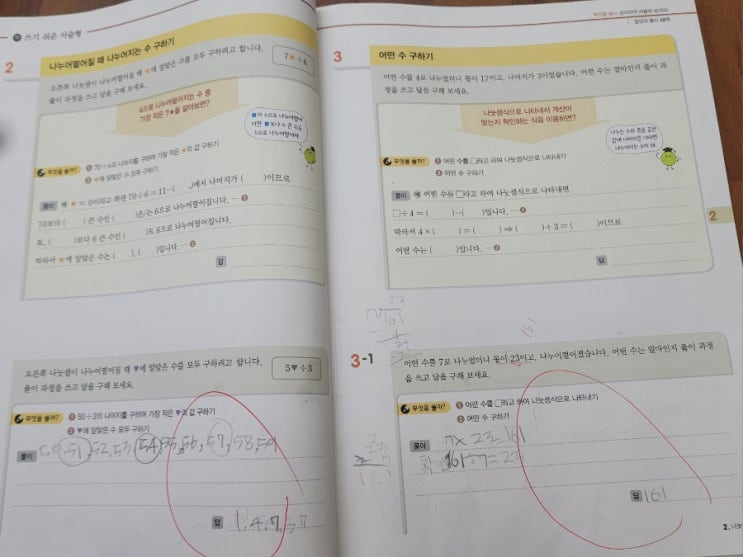 쓰기 쉬운 서술형
2
나누어떨어질 때 나누어지는 수 구하기
오른쪽 나눗셈이 나누어떨어질 때 ★에 알맞은 수를 모두 구하려고 합니다.
풀이 과정을 쓰고 답을 구해 보세요.
7★÷6
6으로 나누어떨어지는 수 중
가장 작은 7★을 알아보면?
■가 6으로 나누어떨어
지면 ■보다 6 큰 수도
6으로 나누어떨어져.
무엇을 쓸까? ① 70÷6의 나머지를 구하여 가장 작은 ★의 값 구하기
② ★에 알맞은 수 모두 구하기
풀이 예 ★=0이라고 하면 70÷6=11…( )에서 나머지가 ( )이므로
70보다 ( ) 큰 수인 ( )은/는 6으로 나누어떨어집니다. … ①
또, ( )보다 6 큰 수인 ( )도 6으로 나누어떨어집니다.
따라서 ★에 알맞은 수는 ( ), ( )입니다. … ②
답
오른쪽 나눗셈이 나누어떨어질 때 ♥에 알맞은 수를 모두 구하려고 합니다.
풀이 과정을 쓰고 답을 구해 보세요.
5♥÷3
무엇을 쓸까? ① 50÷3의 나머지를 구하여 가장 작은 ♥의 값 구하기
② ♥에 알맞은 수 모두 구하기
풀이 50, 51, 52, 53, 54, 55, 56, 57, 58, 59
답 1, 4, 7
무엇을 쓸까?
3
어떤 수 구하기
어떤 수를 4로 나누었더니 몫이 17이고, 나머지가 3이었습니다. 어떤 수는 얼마인지 풀이 과
정을 쓰고 답을 구해 보세요.
나눗셈식으로 나타내서 계산이
맞는지 확인하는 식을 이용하면?
나누는 수와 몫을 곱한
값에 나머지를 더하면
나누어지는 수야.
무엇을 쓸까? ① 어떤 수를 □라고 하여 나눗셈식으로 나타내기
② 어떤 수 구하기
풀이 예 어떤 수를 □라고 하여 나눗셈식으로 나타내면
□÷4=( )…( )입니다. … ①
따라서 4×( )=( ) ⇨ ( )+3=( )이므로
어떤 수는 ( )입니다. … ②
답
2
23
161
161
3-1
어떤 수를 7로 나누었더니 몫이 23이고, 나누어떨어졌습니다. 어떤 수는 얼마인지 풀이 과정
을 쓰고 답을 구해 보세요.
무엇을 쓸까? ① 어떤 수를 □라고 하여 나눗셈식으로 나타내기
② 어떤 수 구하기
풀이 7×23=161
확인 161÷7=23
23
7
161
답 161
2. 나눗